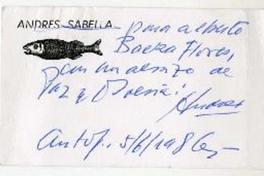 ANDRES SABELLA
para Alberto
Baeza Flores,
con un abrazo de
Paz y Poesía!
Andrés
Antof. 5/6/1986